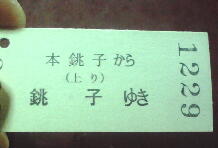 本銚子から
(上り)
銚子ゆき
1229